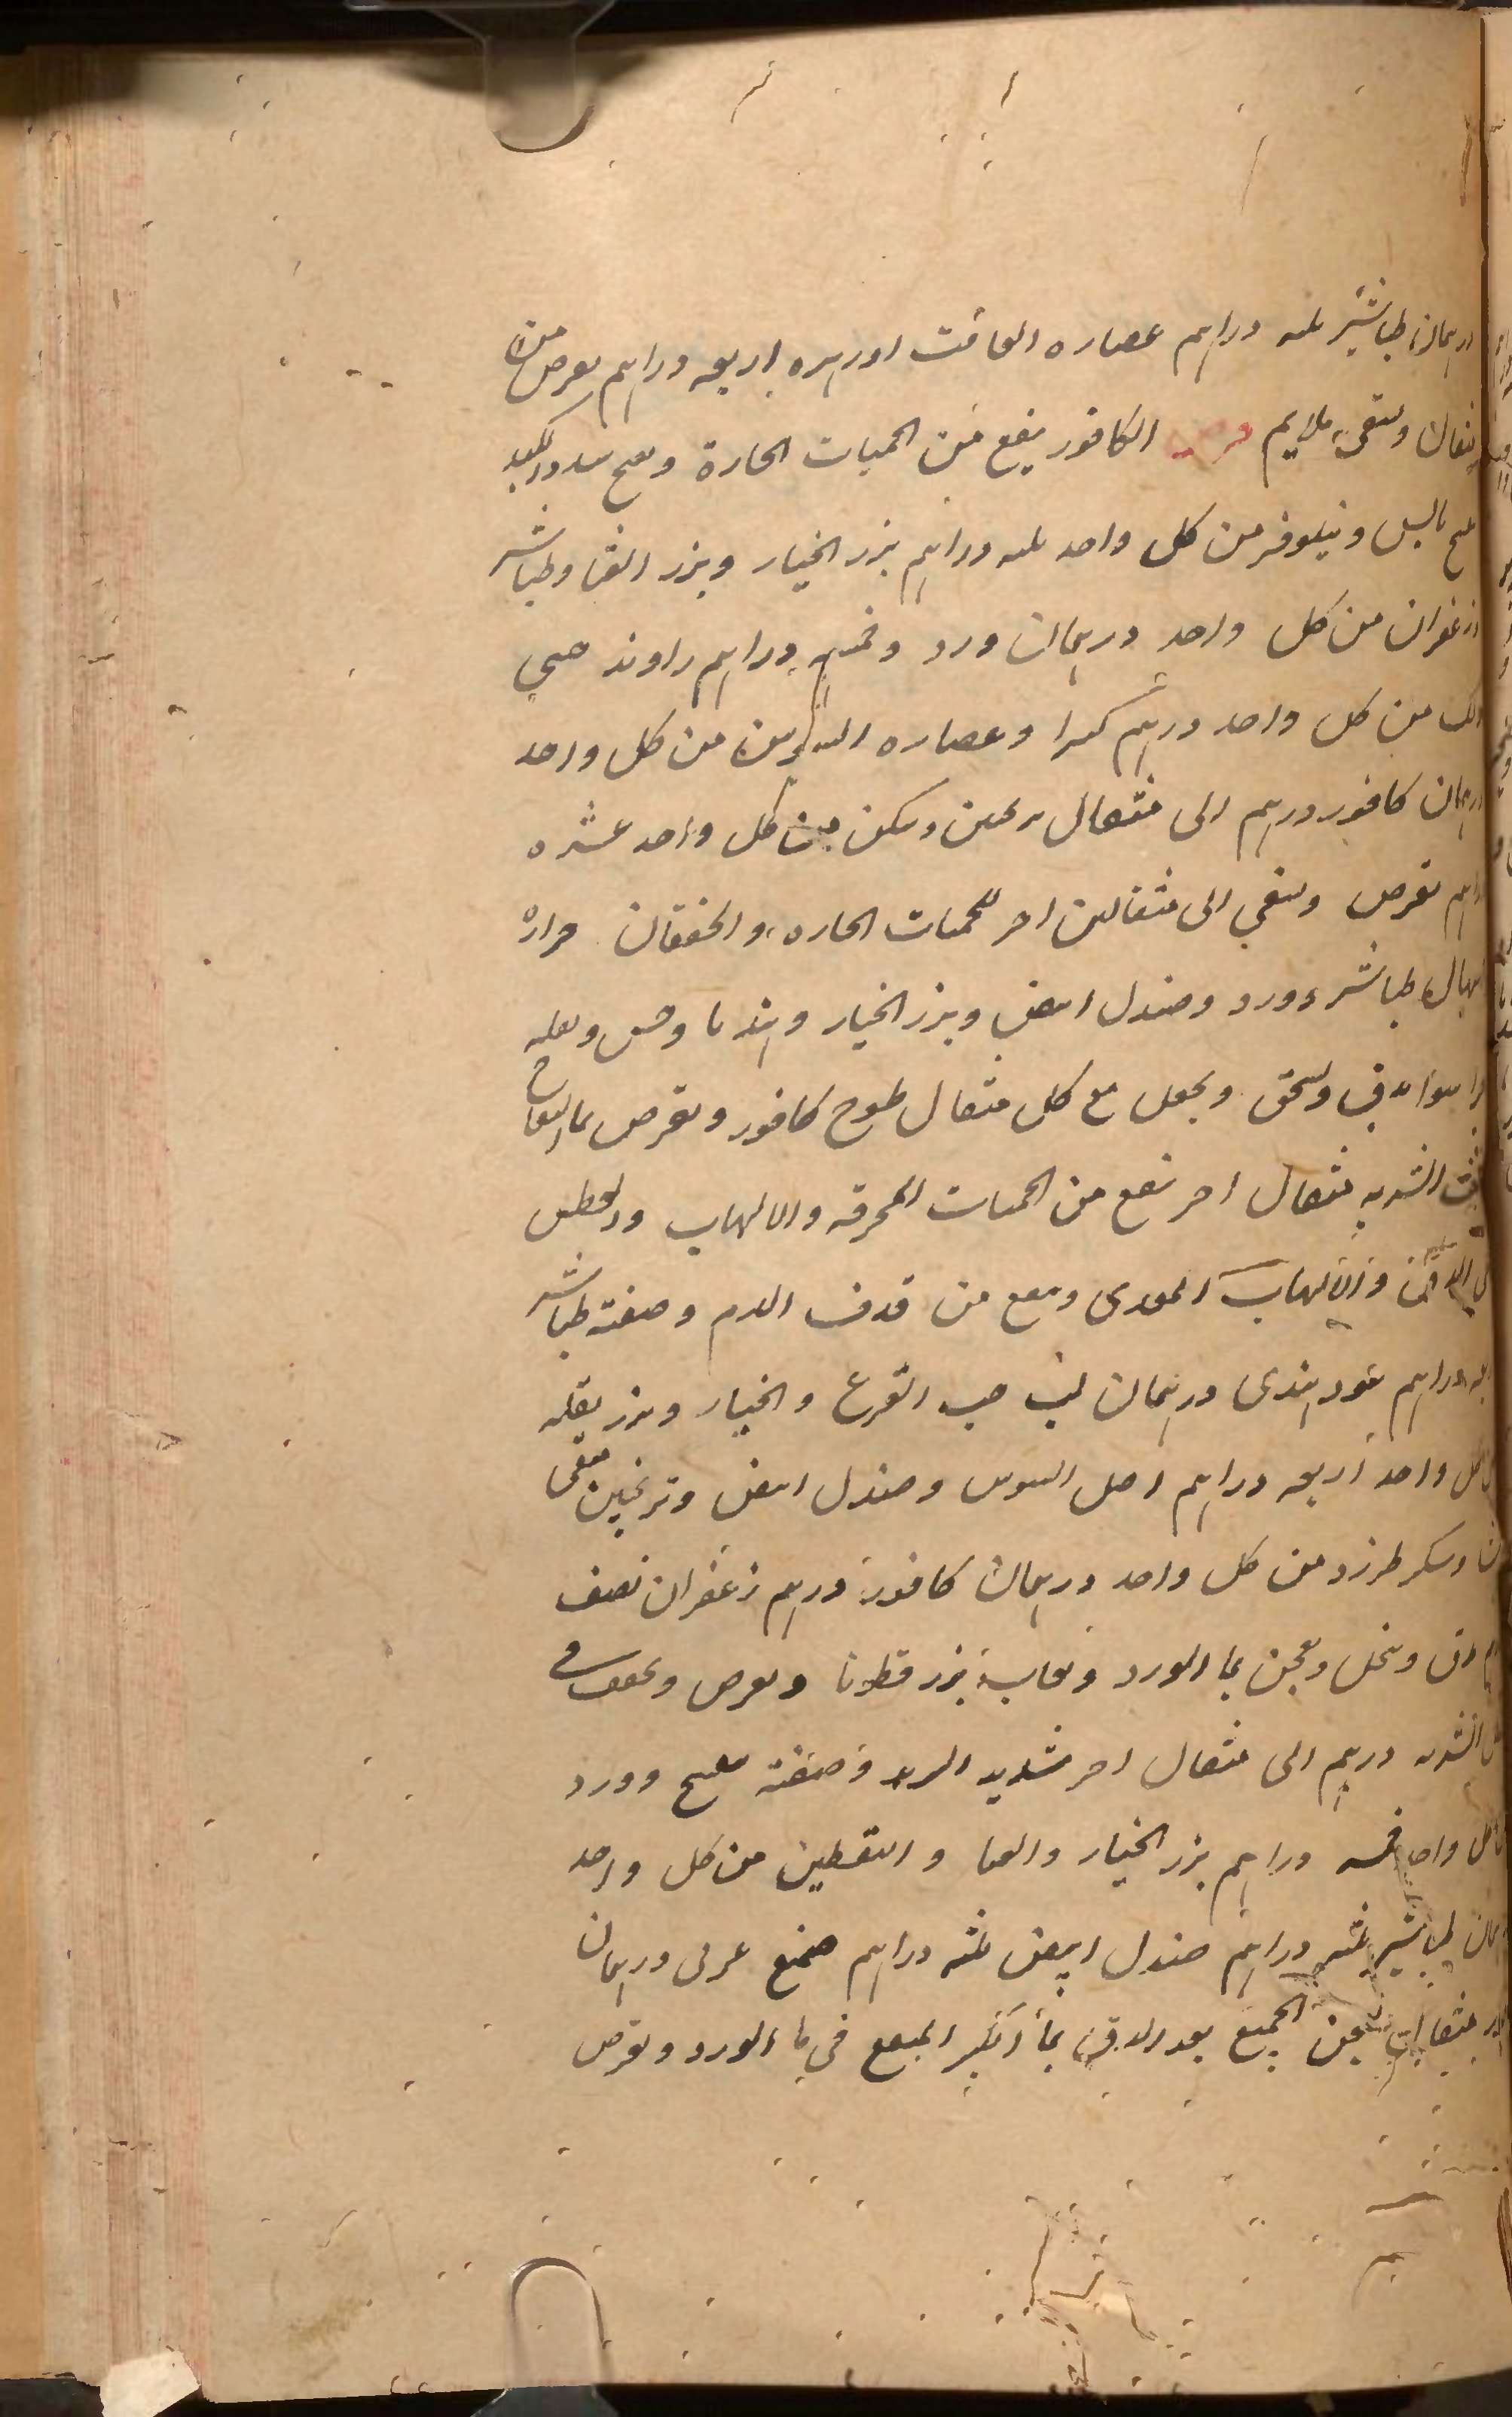 درهمان طباشير ثلثه دراهم عصاره الغافت او زهره اربعه دراهم يقرص من
مثقال ويسقى قرص الكافور ينفع من الحميات الحارة ويفتح سدد الكبد
بالس ونيلوفر من كل واحد ثلثه دراهم بزر الخيار وبزر القثا وطباشير
وزعفران من كل واحد درهمان ورد وخمسه دراهم راوند صيني
ولك من كل واحد درهم كثيرا وعصاره السوس من كل واحد
درهمان كافور درهم الى مثقال ترنجبين وسكر من كل واحد عشره
دراهم يقرص ويسقى الى مثقالين اخر للحميات الحاره والخفقان حراره
طباشير وورد وصندل ابيض وبزر الخيار وهندبا وخس وبقله
سوا يدق ويسحق ويجعل مع كل مثقال طسوج كافور ويقرص بما التفاح
الشربه مثقال اخر ينفع من الحميات المحرقه والالتهاب والعطش
والالتهاب المعدى وينفع من قذف الدم وصفته طباشير
دراهم عود هندى درهمان لب حب القرع والخيار وبزر بقله
كل واحد اربعه دراهم اصل السوس وصندل ابيض وترنجبين منقى
وسكر طبرزد من كل واحد درهمان كافور درهم زعفران نصف
دق وينخل ويعجن بما الورد ولعاب بزر قطونا ويقرص ويجفف فى
الشربه درهم الى مثقال اخر شديد البرد وصفته وورد
كل واحد خمسه دراهم بزر الخيار والقثا واليقطين من كل واحد
درهمان طباشير ثلثه دراهم صندل ابيض ثلثه دراهم صمغ عربى درهمان
يعجن الجميع بعد الدق بما المنقع فى ما الورد ويقرص